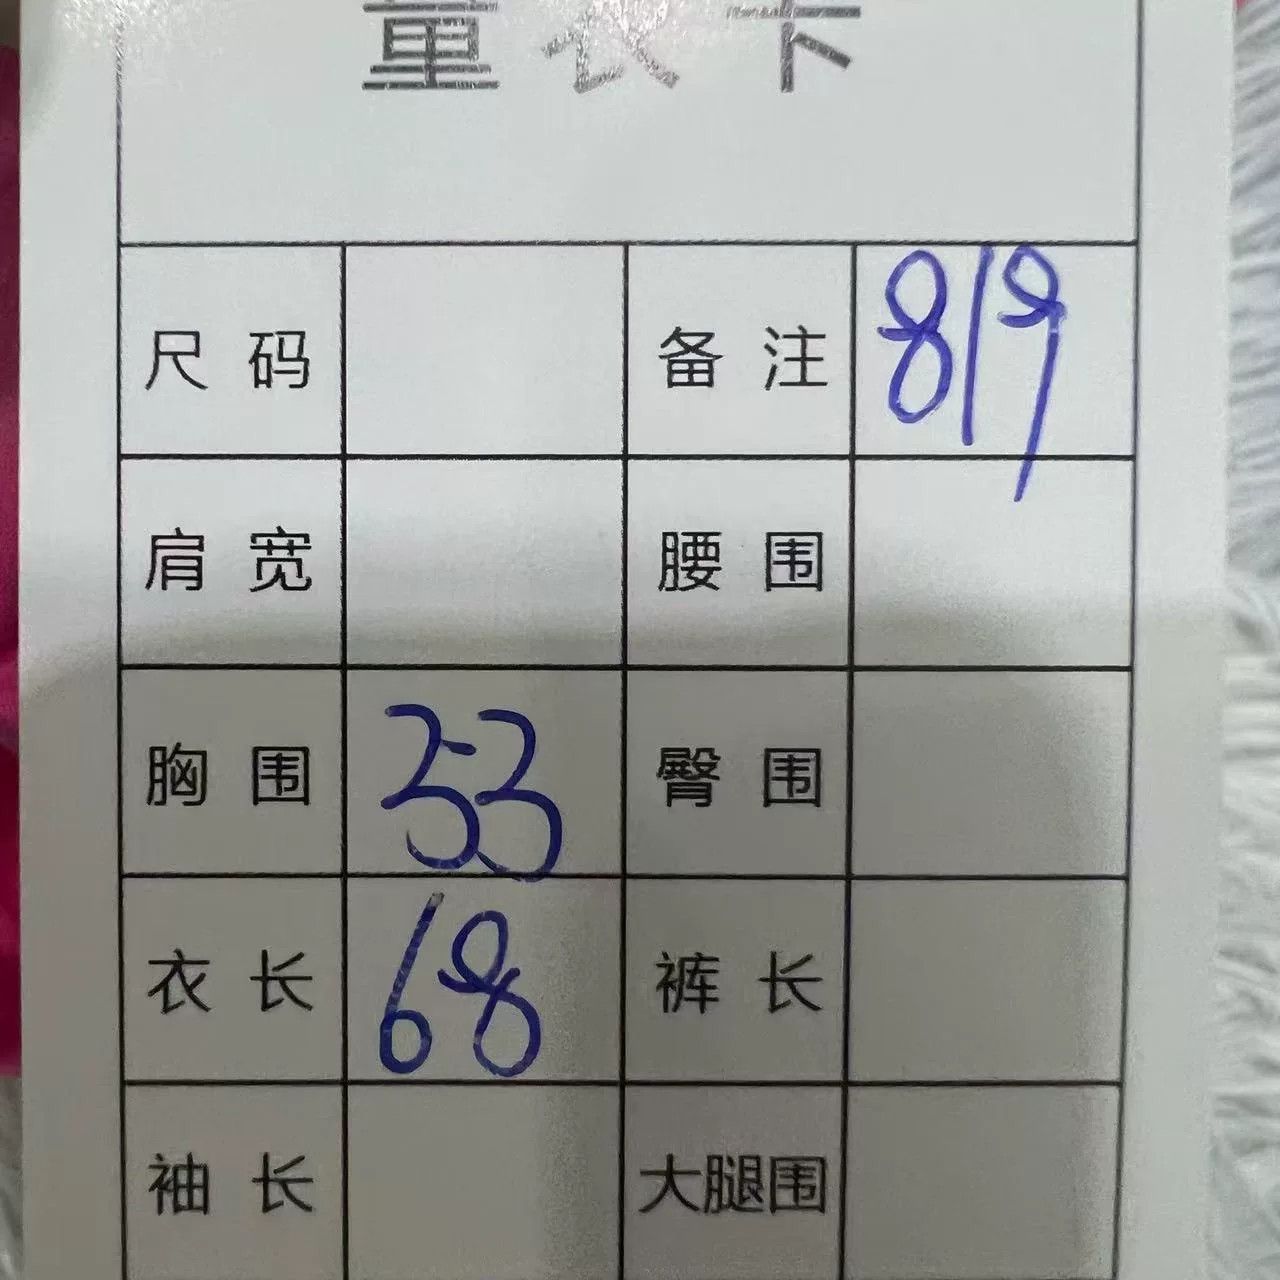 量衣卡
尺码 备注 819
肩宽 腰围
胸围 臀围
衣长 68 裤长
袖长 大腿围